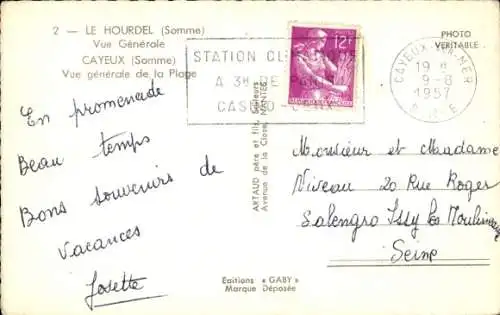 2 — LE HOURDEL (Somme)
Vue Générale
CAYEUX (Somme)
Vue générale de la Plage
En promenade
Beau temps
Bons souvenirs de
vacances
Josette
STATION
A 3H DE PARIS
CASINO
12F
POSTES
PHOTO
VERITABLE
CAYEUX-SUR-MER
19 H
9-8
1957
SOMME
ARTAUD père et fils, Editeurs
Avenue de la Close, NANTES
Monsieur et Madame
Niveau 20 Rue Roger
Salengro Issy les Moulineaux
Seine
Editions « GABY »
Marque Déposée